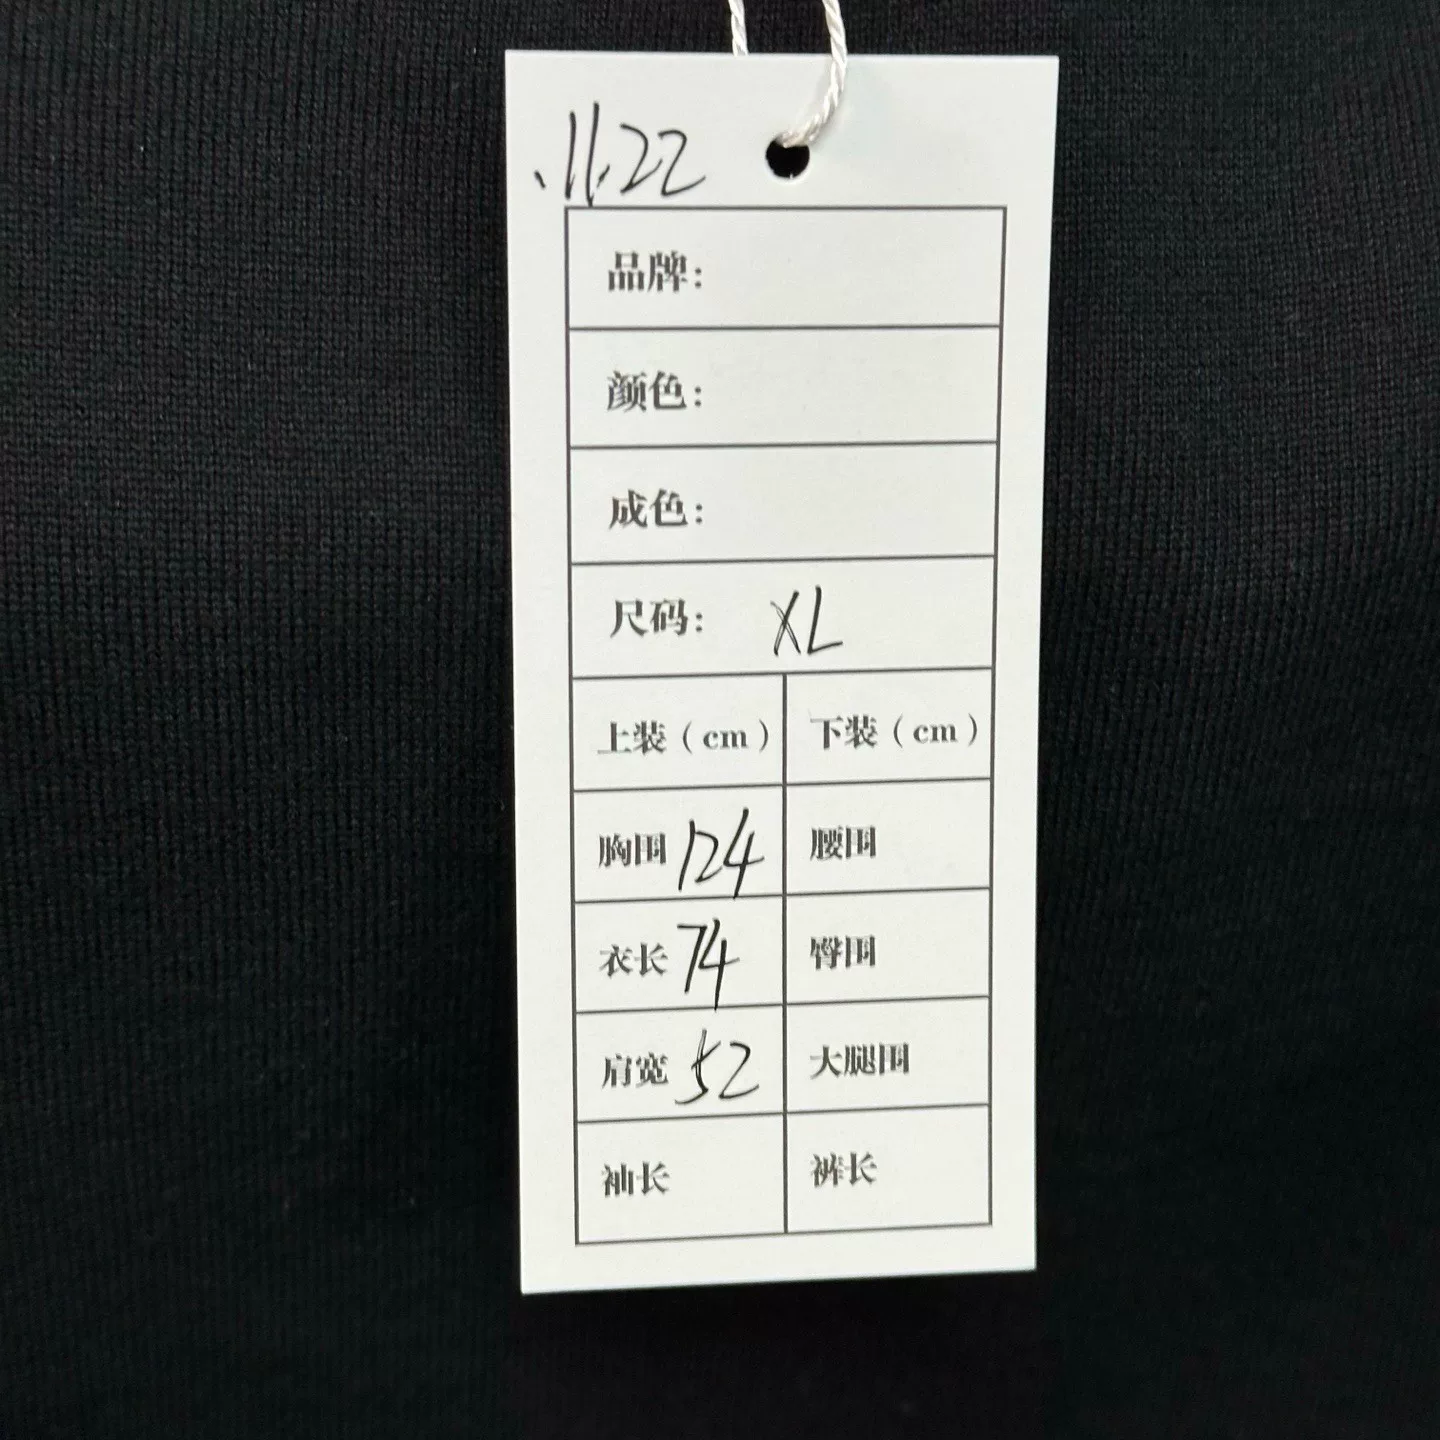 .11.22
品牌：
颜色：
成色：
尺码： XL
上装（cm） 下装（cm）
胸围 124 腰围
衣长 74 臀围
肩宽 52 大腿围
袖长 裤长